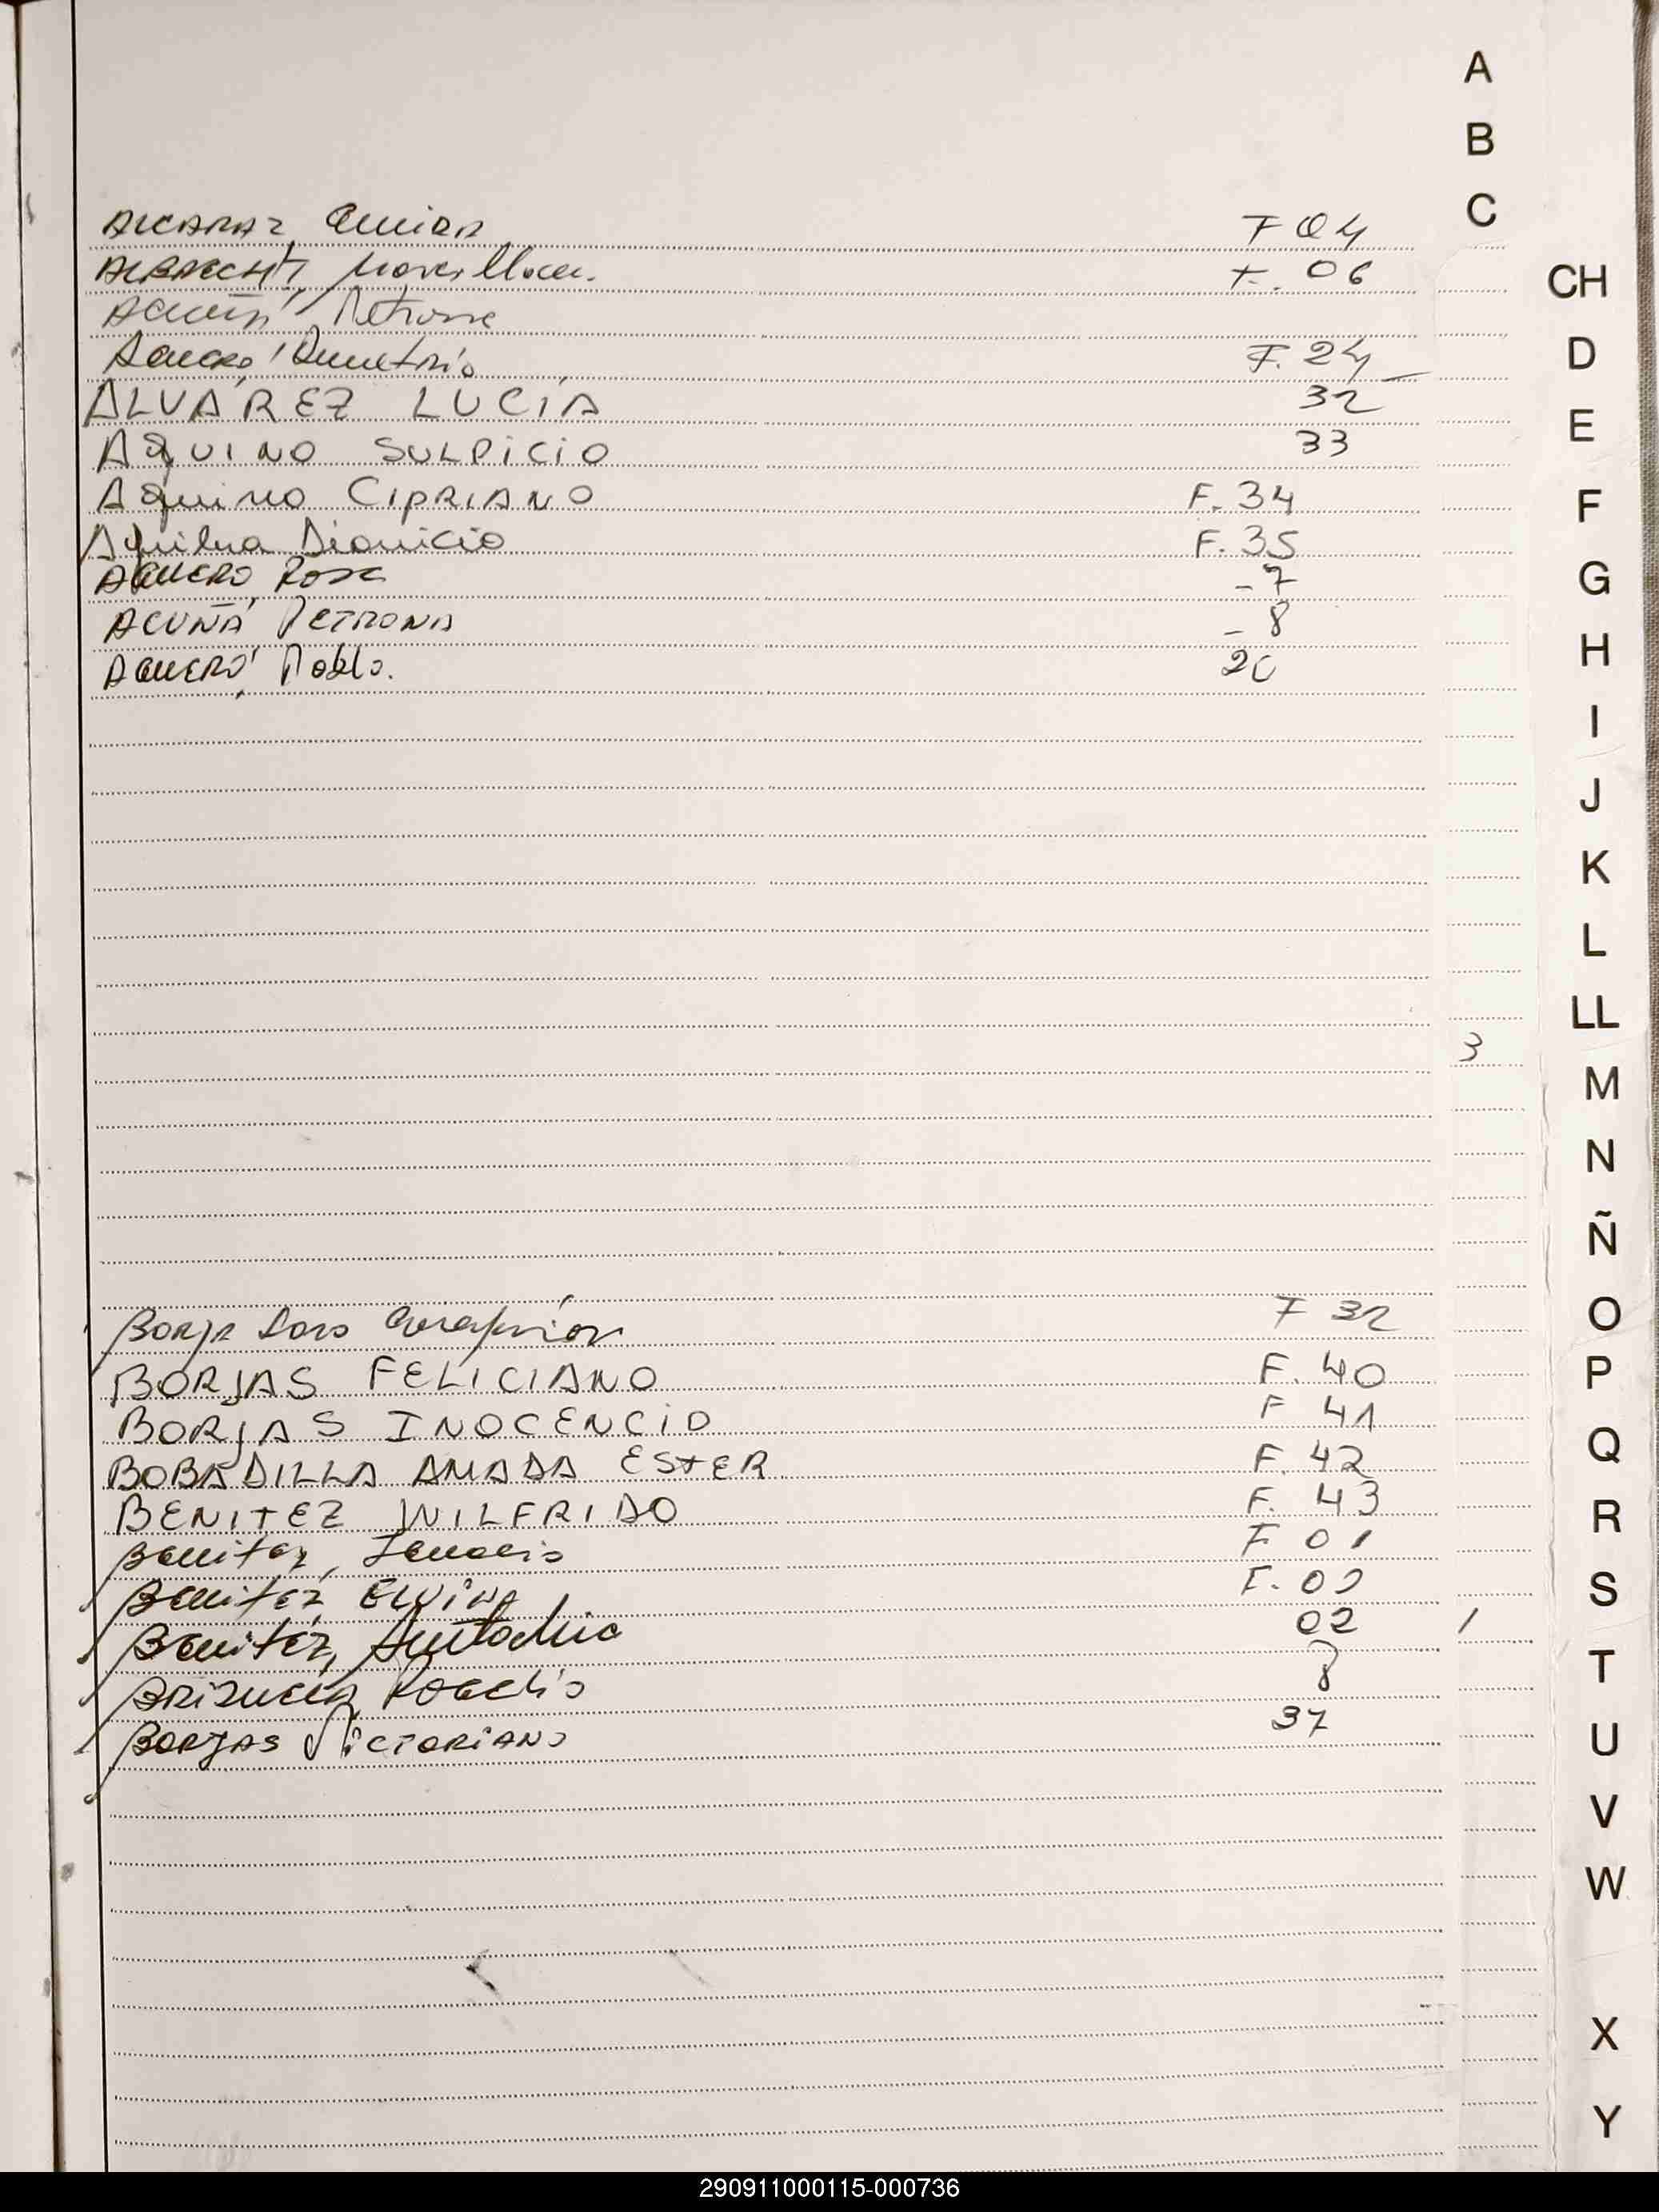 A
B
C
CH
D
E
F
G
H
I
J
K
L
LL
M
N
Ñ
O
P
Q
R
S
T
U
V
W
X
Y
ALCARAZ F 04
ALBRECHT, F. 06
ACUÑA,
AGUERO, Demetrio F. 24
ALVÁREZ LUCÍA 32
AQUINO SULPICIO 33
Aquino CIPRIANO F. 34
Dionicio F. 35
AGUERO, Rosa - 7
ACUÑA, PETRONA - 8
AGUERO, Pablo. 20
3
BORJA F 32
BORJAS FELICIANO F. 40
BORJAS INOCENCIO F 41
BOBADILLA AMADA ESTER F. 42
BENITEZ WILFRIDO F. 43
Benitez, Ignacio F 01
Benitez, Elvira F. 02
Benitez, 02 1
8
BORJAS VICTORIANO 37
290911000115-000736